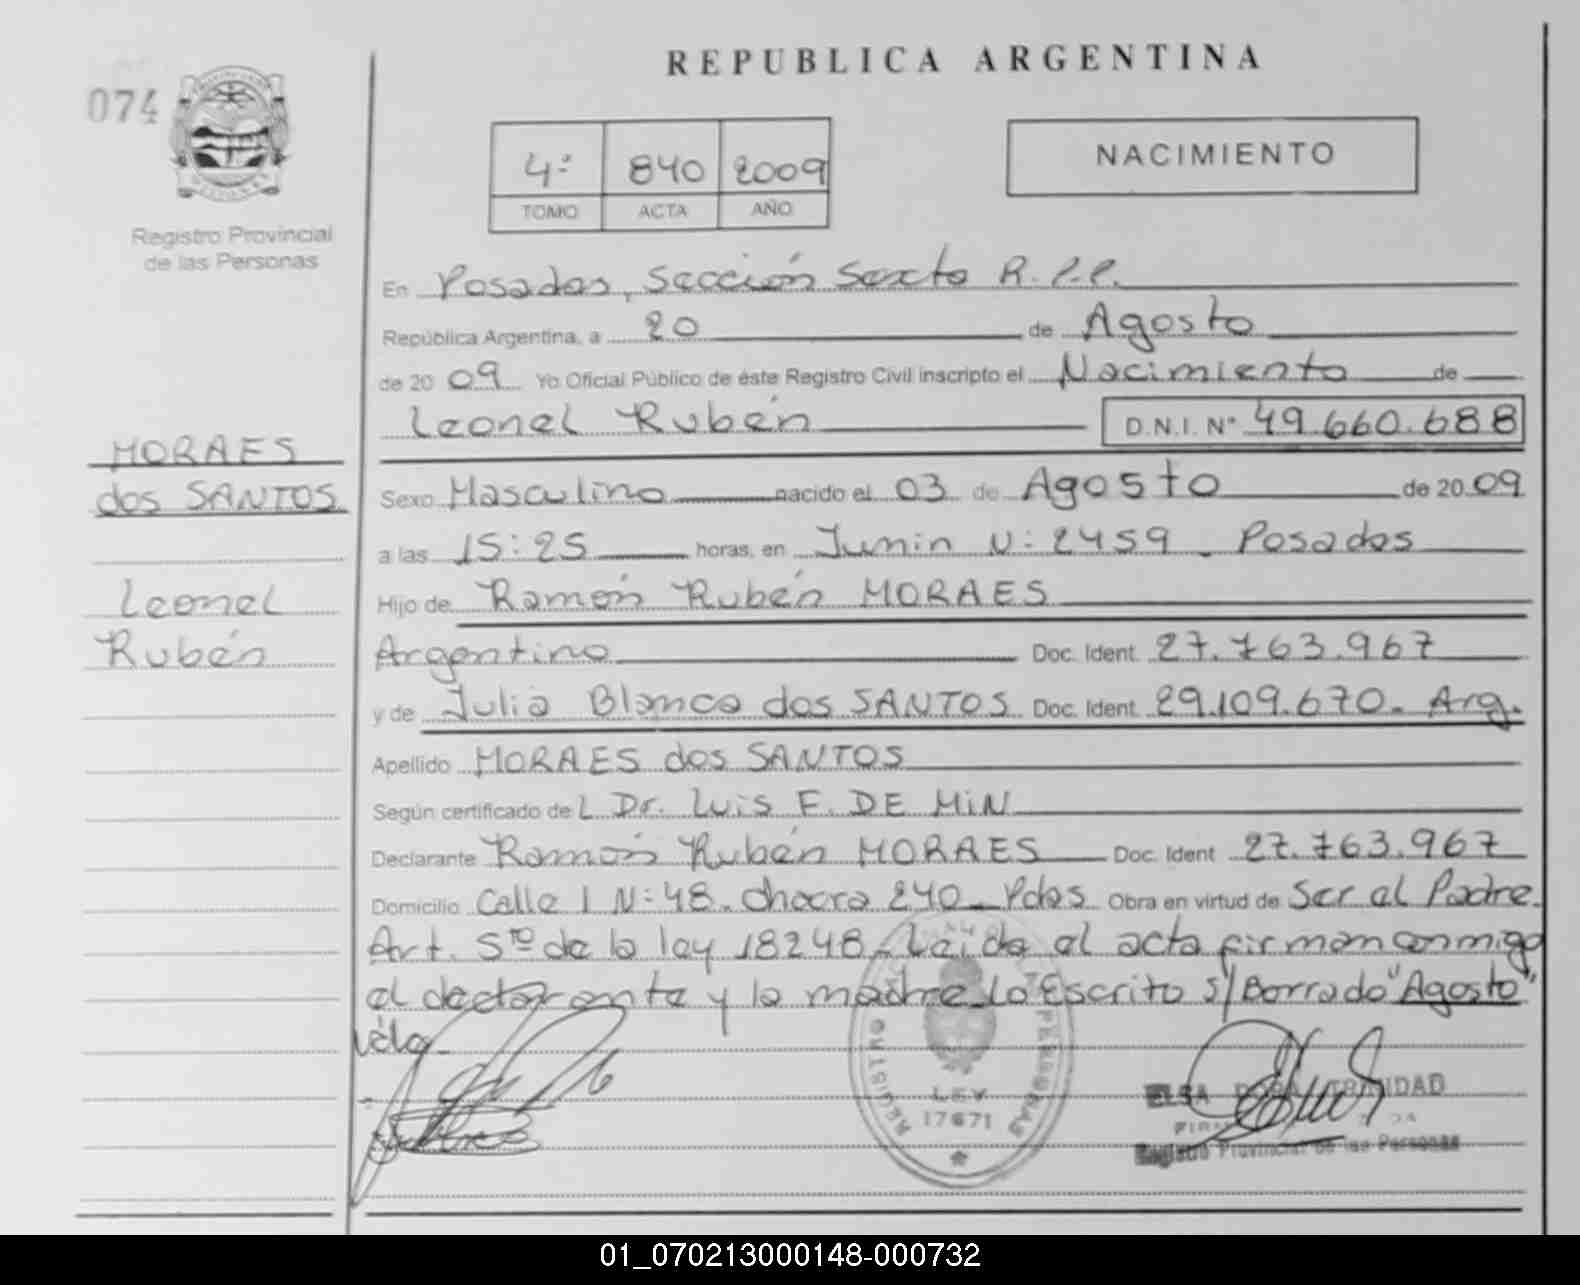 REPUBLICA ARGENTINA
074
NACIMIENTO
4º 840 2009
TOMO ACTA AÑO
Registro Provincial
de las Personas
En Posadas, Sección Sexta R.P.P.
República Argentina, a 20 de Agosto
de 20 09 Yo Oficial Público de éste Registro Civil inscripto el Nacimiento de
Leonel Rubén D.N.I. Nº 49.660.688
MORAES
dos SANTOS
Leonel
Rubén
Sexo Masculino nacido el 03 de Agosto de 20 09
a las 15:25 horas, en Junin N: 2459 - Posadas
Hijo de Ramón Rubén MORAES
Argentino Doc. Ident. 27.763.967
y de Julia Blanca dos SANTOS Doc. Ident. 29.109.670. Arg.
Apellido MORAES dos SANTOS
Según certificado de L Dr. Luis F. DE MIN
Declarante Ramón Rubén MORAES Doc. Ident. 27.763.967
Domicilio Calle 1 N: 48. Chacra 240 - Pdas Obra en virtud de Ser el Padre.
Art. 5to de la ley 18248 - Leida el acta firman conmigo
el declarante y la madre. Lo Escrito s/ Borrado "Agosto"
Vale.
REGISTRO PERSONAS
LEY
17671
ELSA DORA TRINIDAD
Registro Provincial de las Personas
01_070213000148-000732